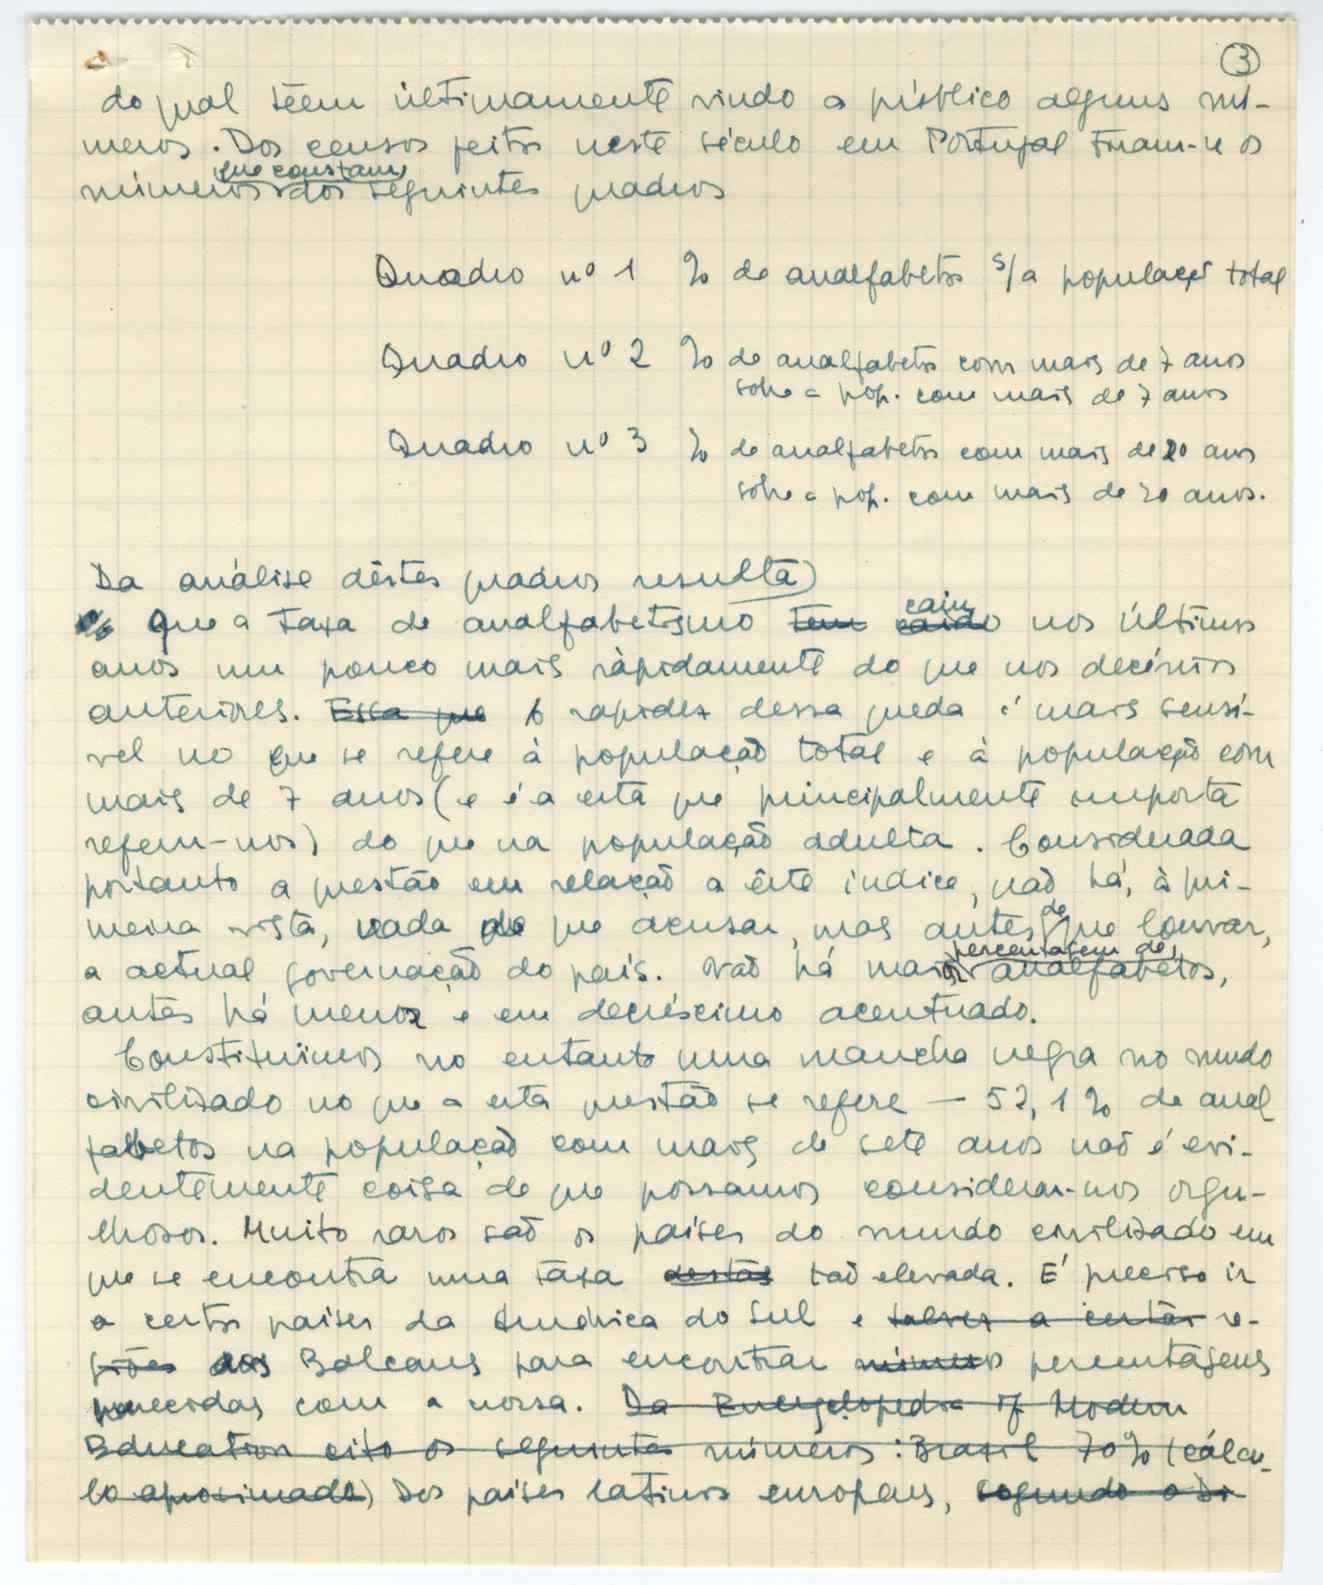 3
do qual têem últimamente vindo a público alguns nú-
meros. Dos censos feitos neste século em Portugal tiram-se os
que constam
números dos seguintes quadros
Quadro nº 1 % de analfabetos s/a população total
Quadro nº 2 % de analfabetos com mais de 7 anos
sobre a pop. com mais de 7 anos
Quadro nº 3 % de analfabetos com mais de 20 anos
sobre a pop. com mais de 20 anos.
Da análise dêstes quadros resulta
que a taxa de analfabetismo tem caído caiu nos últimos
anos um pouco mais ràpidamente do que nos decénios
anteriores. Essa que A rapidez dessa queda é mais sensí-
vel no que se refere à população total e à população com
mais de 7 anos (e é a esta que principalmente importa
referir-nos) do que na população adulta. Considerada
portanto a questão em relação a êste índice, não há, à pri-
meira vista, nada de que acusar, mas antes de que louvar,
a actual governação do país. Não há maior percentagem de analfabetos,
antes há menor e em decréscimo acentuado.
Constituímos no entanto uma mancha negra no mundo
civilizado no que a esta questão se refere — 52,1% de anal
fabetos na população com mais de sete anos não é evi-
dentemente coisa de que possamos considerar-nos orgu-
lhosos. Muito raros são os países do mundo civilizado em
que se encontra uma taxa destas tão elevada. É preciso ir
a certos países da América do Sul e talvez a certas re-
giões dos Balcans para encontrar números percentagens
parecidas com a nossa. Da Encyclopedia of Modern
Education cito os seguintes números: Brasil 70% (cálcu-
lo aproximado) Dos países latinos europeus, segundo o Di